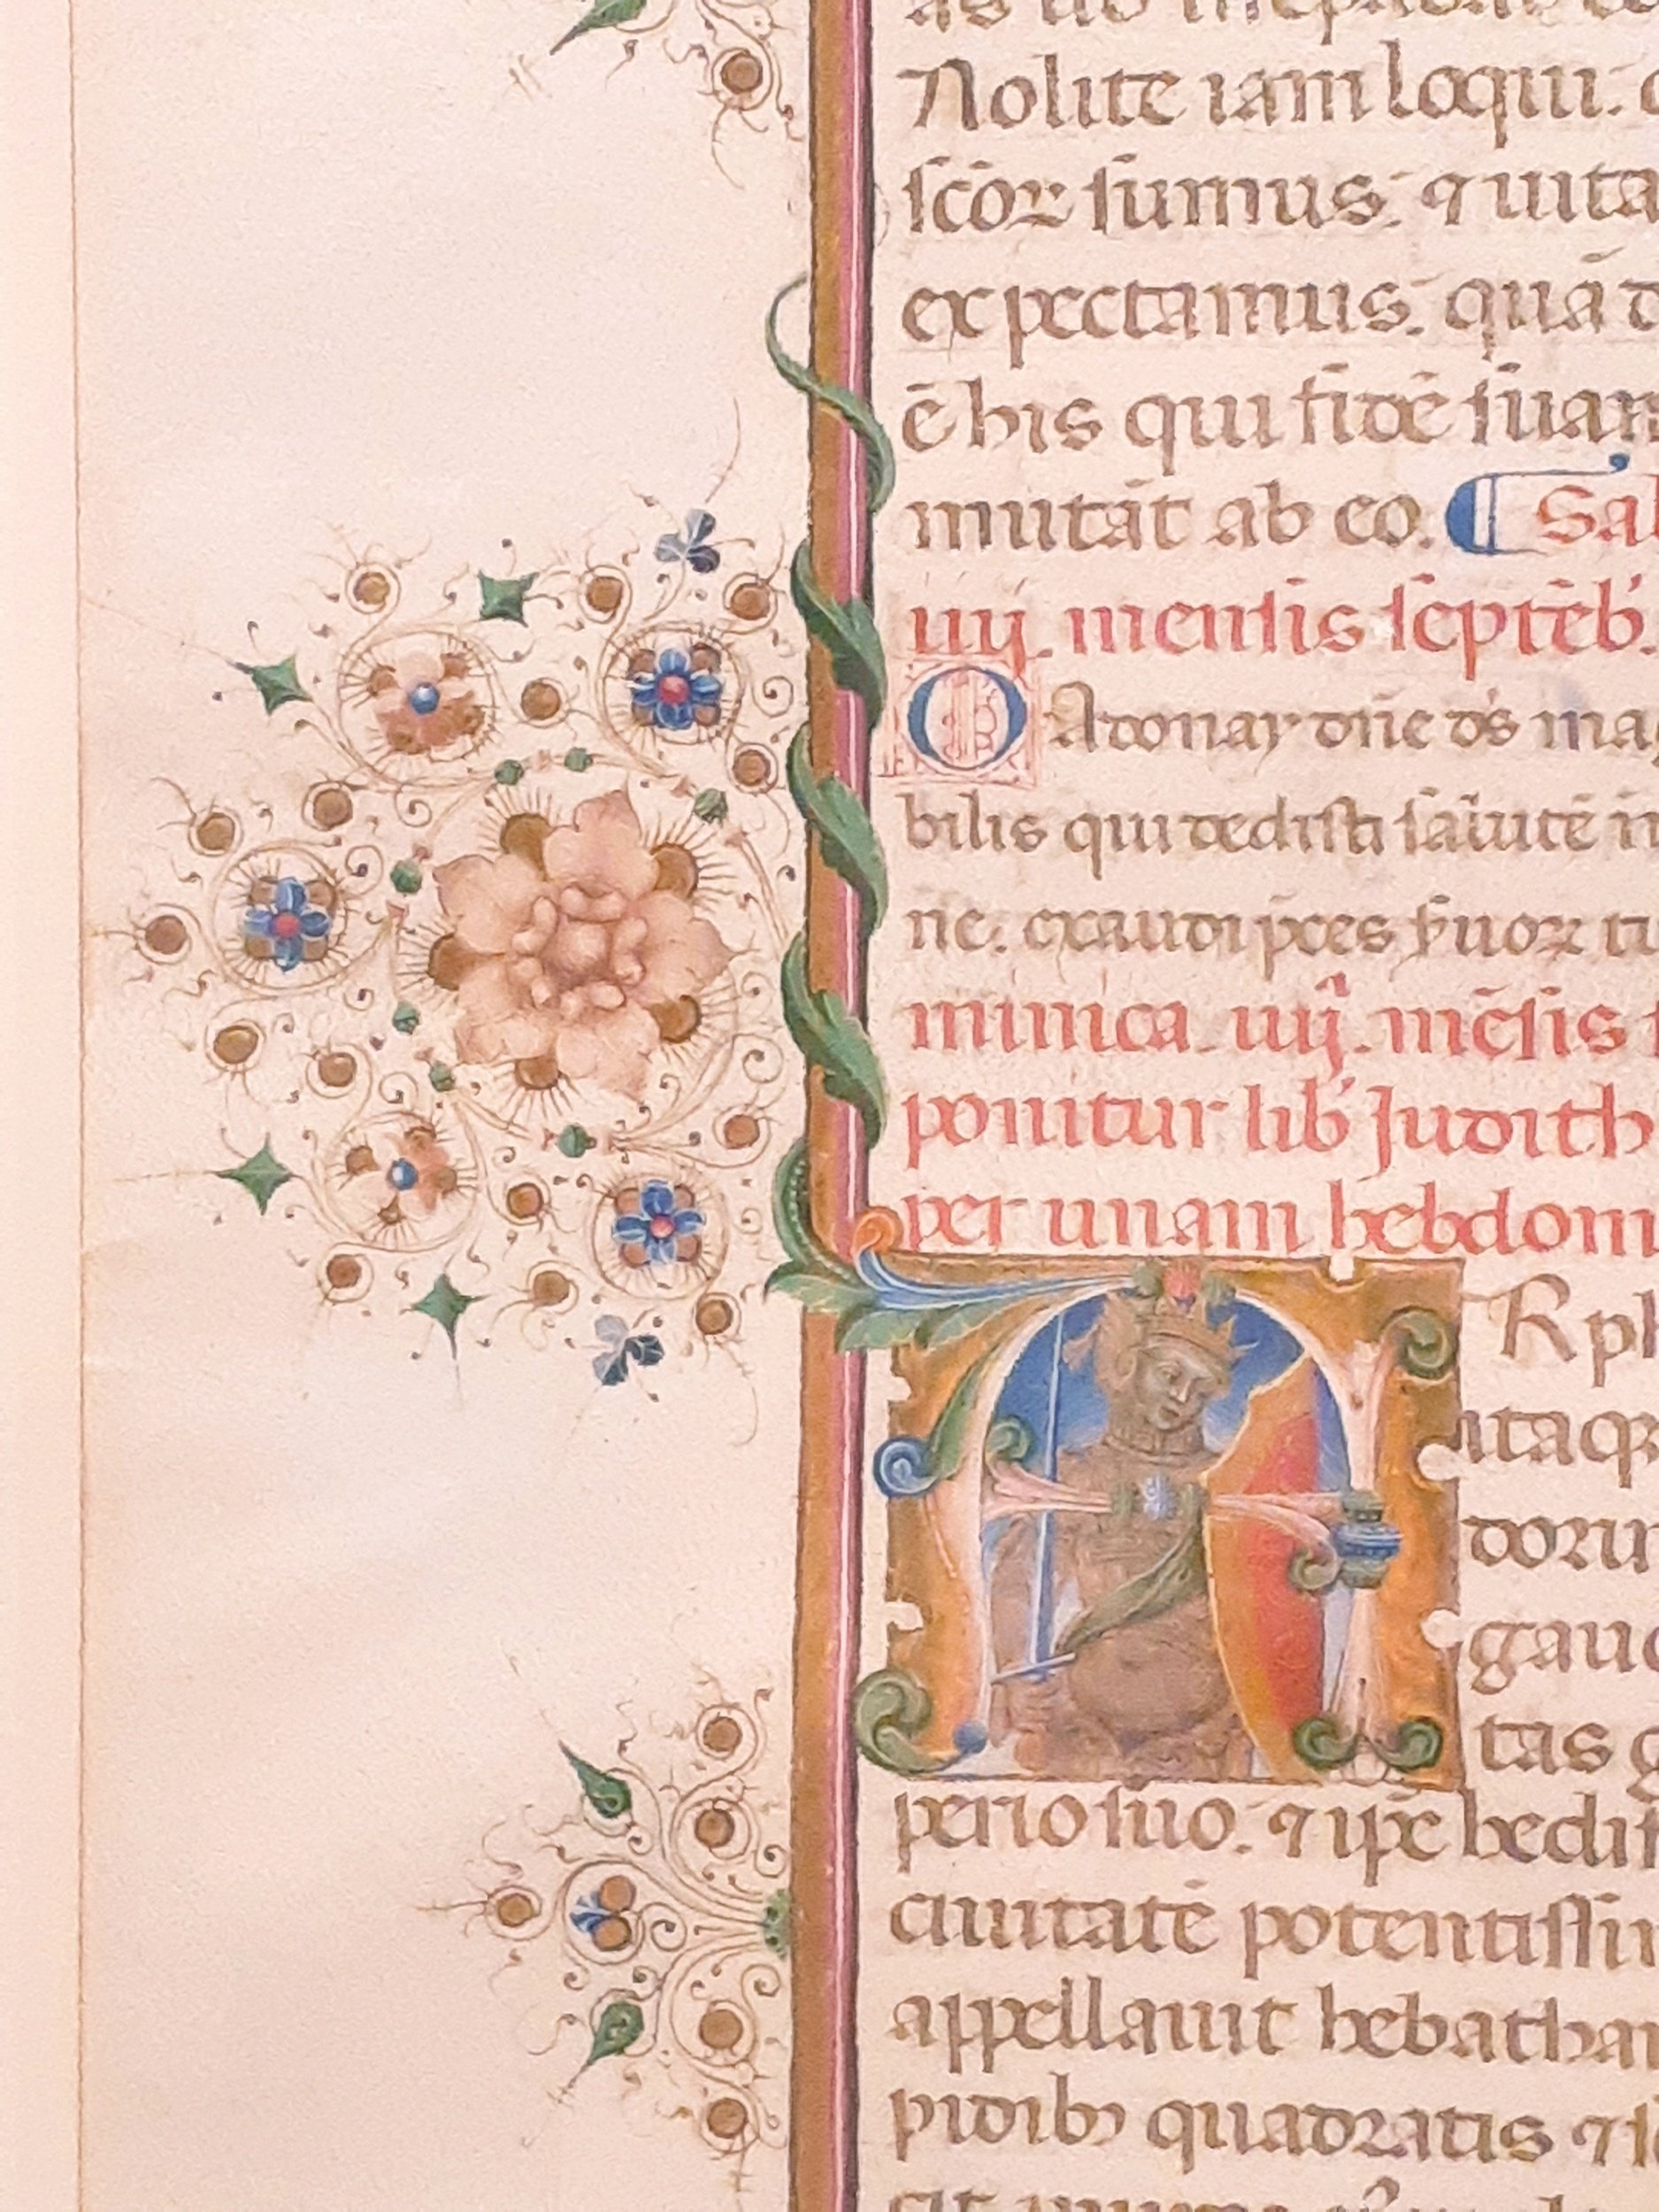 Nolite iam loqui.
scõꝝ sumus. ⁊ uita
expectamus. quã d
ē his qui fidē suam
mutāt ab eo. ¶ Sab
iiij. mensis septēb.
O Adonay dñe ds̄ mag
bilis qui dedisti salutē in
ne. exaudi p̄ces s̄uoꝝ tu
minica. iiij. mēsis s
ponitur lib' Judith
per unam hebdom
A Rph
itaqꝫ
dorum
gaud
tas g
perio suo. ⁊ ip̄e hedif
ciuitatē potentissim
appellauit hebathan
pidibꝫ quadratis ⁊